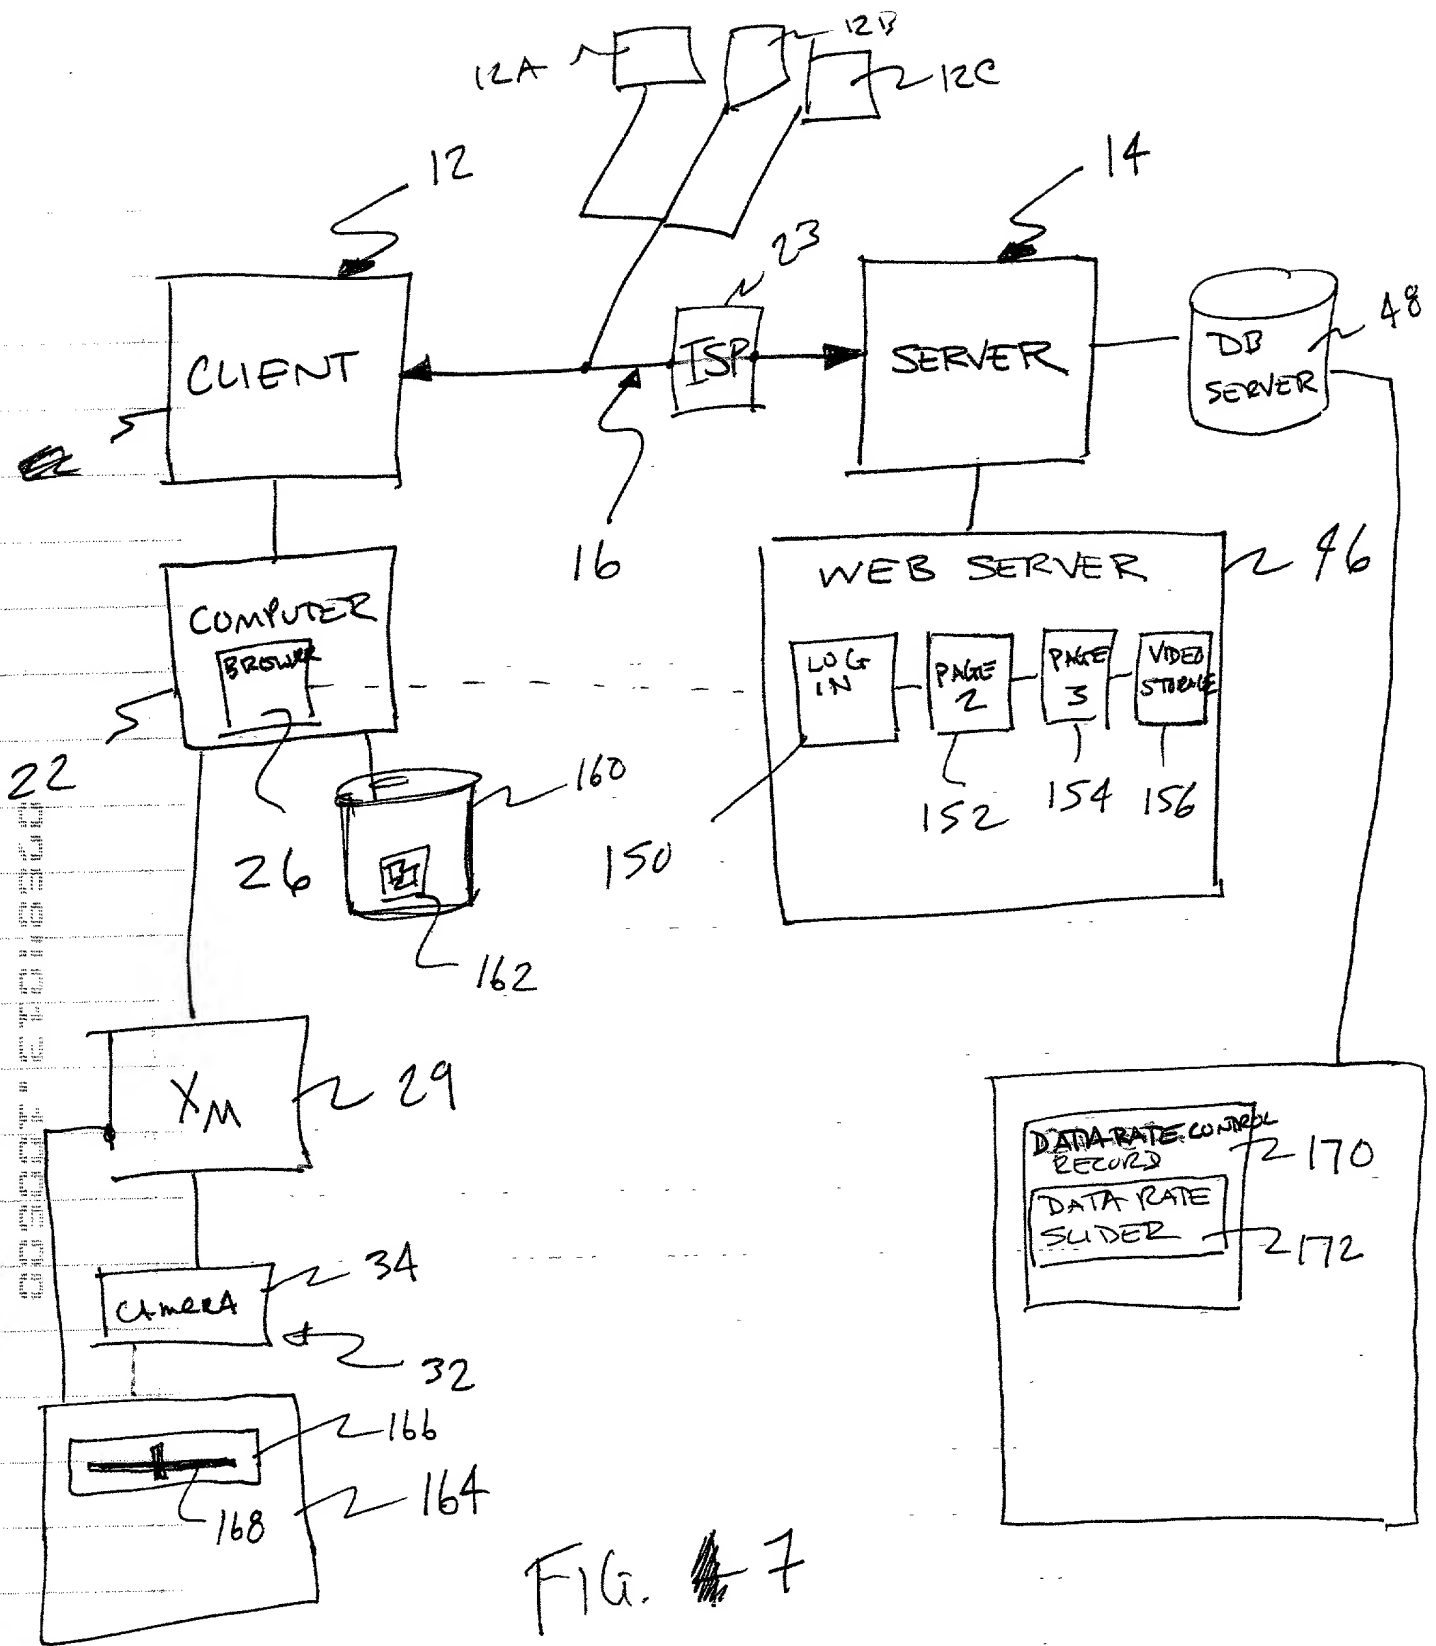 12A
12B
12C
12
14
23
CLIENT
ISP
SERVER
DB
SERVER
48
16
COMPUTER
BROWSER
22
26
160
162
WEB SERVER
46
LOG
IN
PAGE
2
PAGE
3
VIDEO
STORAGE
150
152
154
156
XM
29
CAMERA
34
32
166
168
164
DATA RATE CONTROL
RECORD
170
DATA RATE
SLIDER
172
FIG. 7